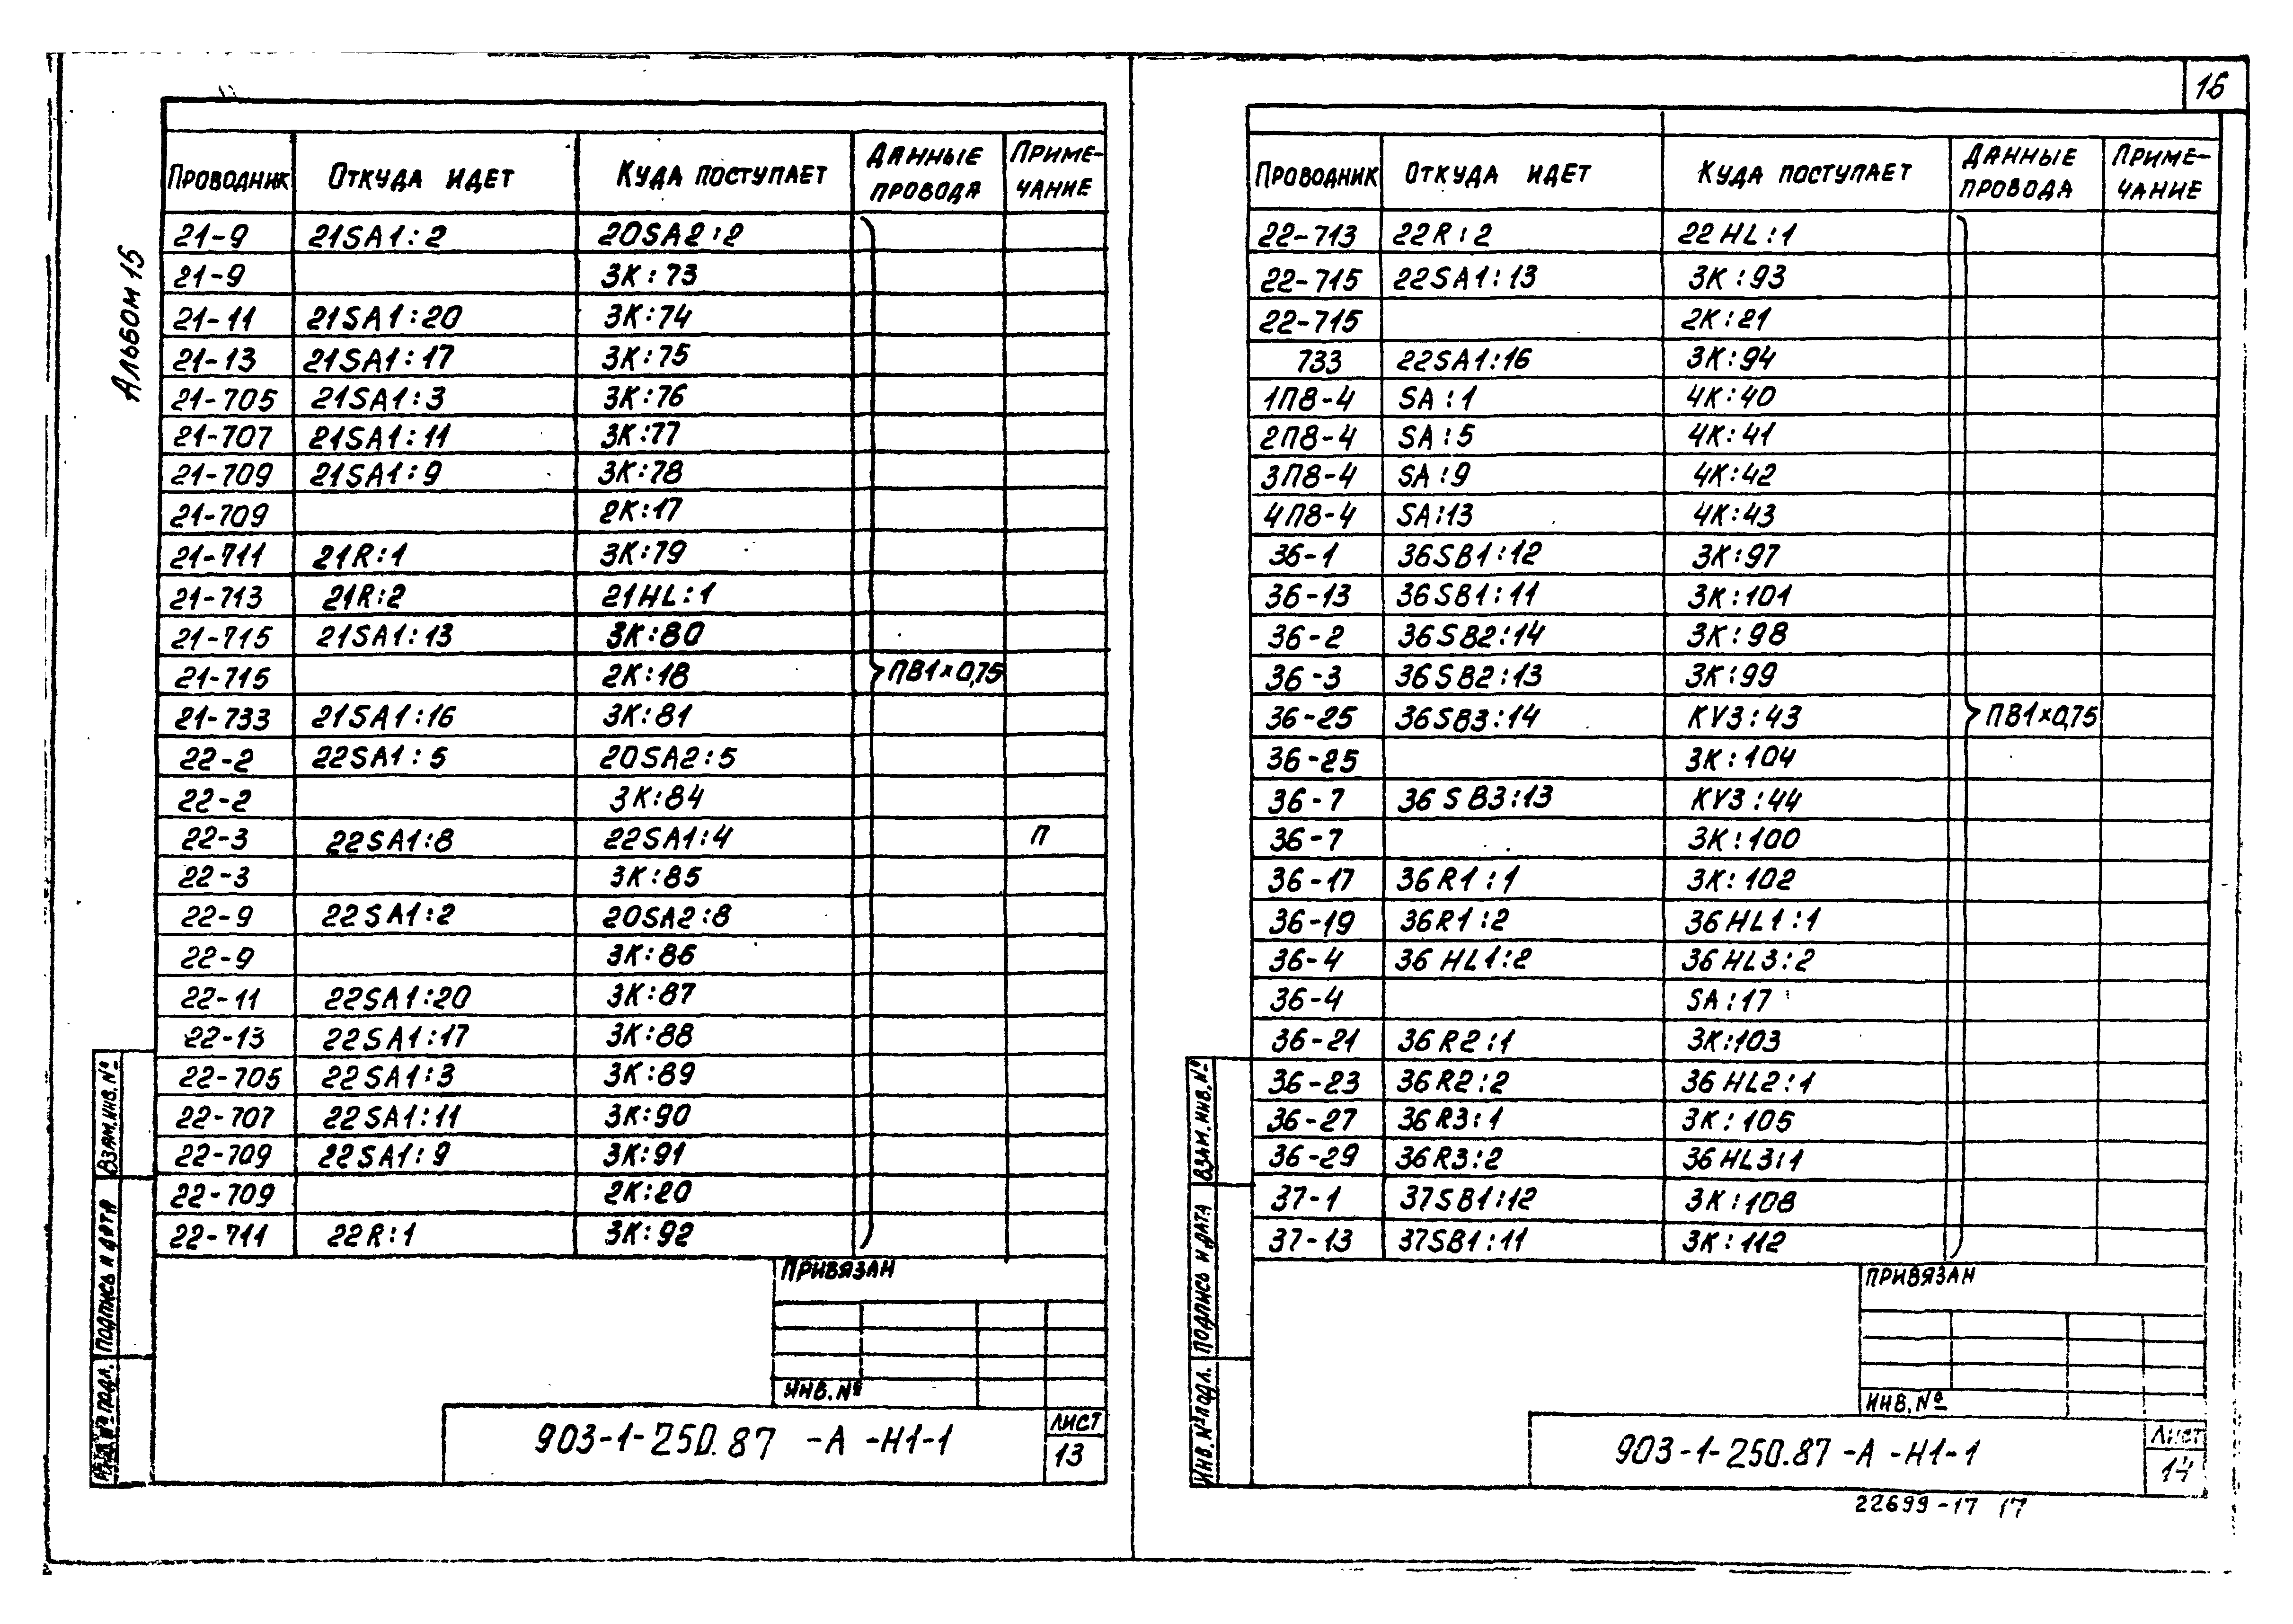 16
Альбом 15
Проводник Откуда идет Куда поступает Данные провода Приме-чание
21-9 21SA1:2 20SA2:2
21-9 3К:73
21-11 21SA1:20 3К:74
21-13 21SA1:17 3К:75
21-705 21SA1:3 3К:76
21-707 21SA1:11 3К:77
21-709 21SA1:9 3К:78
21-709 2К:17
21-711 21R:1 3К:79
21-713 21R:2 21HL:1
21-715 21SA1:13 3К:80
21-715 2К:18 ПВ1×0,75
21-733 21SA1:16 3К:81
22-2 22SA1:5 20SA2:5
22-2 3К:84
22-3 22SA1:8 22SA1:4 П
22-3 3К:85
22-9 22SA1:2 20SA2:8
22-9 3К:86
22-11 22SA1:20 3К:87
22-13 22SA1:17 3К:88
22-705 22SA1:3 3К:89
22-707 22SA1:11 3К:90
22-709 22SA1:9 3К:91
22-709 2К:20
22-711 22R:1 3К:92
Привязан
Инв. №
903-1-250.87 -А -Н1-1
Лист
13
Взам. инв. №
Подпись и дата
Инв. № подл.
Проводник Откуда идет Куда поступает Данные провода Приме-чание
22-713 22R:2 22HL:1
22-715 22SA1:13 3К:93
22-715 2К:21
733 22SA1:16 3К:94
1П8-4 SA:1 4К:40
2П8-4 SA:5 4К:41
3П8-4 SA:9 4К:42
4П8-4 SA:13 4К:43
36-1 36SB1:12 3К:97
36-13 36SB1:11 3К:101
36-2 36SB2:14 3К:98
36-3 36SB2:13 3К:99
36-25 36SB3:14 KV3:43 ПВ1×0,75
36-25 3К:104
36-7 36SB3:13 KV3:44
36-7 3К:100
36-17 36R1:1 3К:102
36-19 36R1:2 36HL1:1
36-4 36HL1:2 36HL3:2
36-4 SA:17
36-21 36R2:1 3К:103
36-23 36R2:2 36HL2:1
36-27 36R3:1 3К:105
36-29 36R3:2 36HL3:1
37-1 37SB1:12 3К:108
37-13 37SB1:11 3К:112
Привязан
Инв. №
903-1-250.87 -А -Н1-1
Лист
14
Взам. инв. №
Подпись и дата
Инв. № подл.
22699-17 17